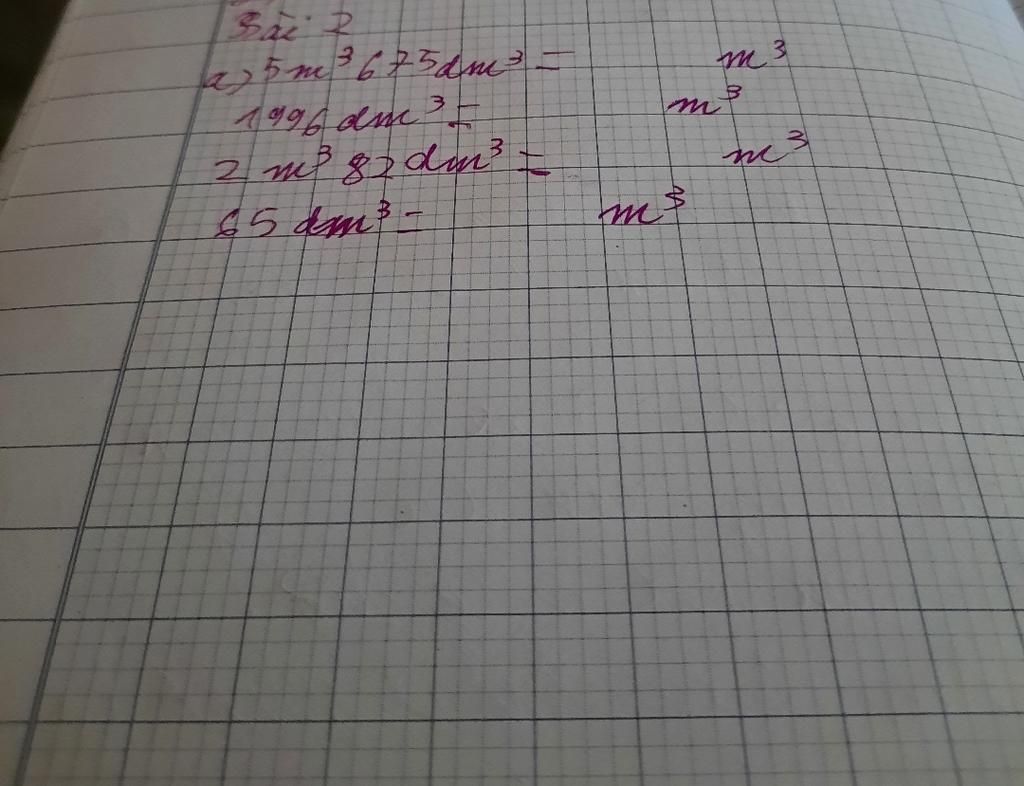 Bài 2
a) 5m³ 675dm³ = m³
1996 dm³ = m³
2 m³ 82 dm³ = m³
65 dm³ = m³